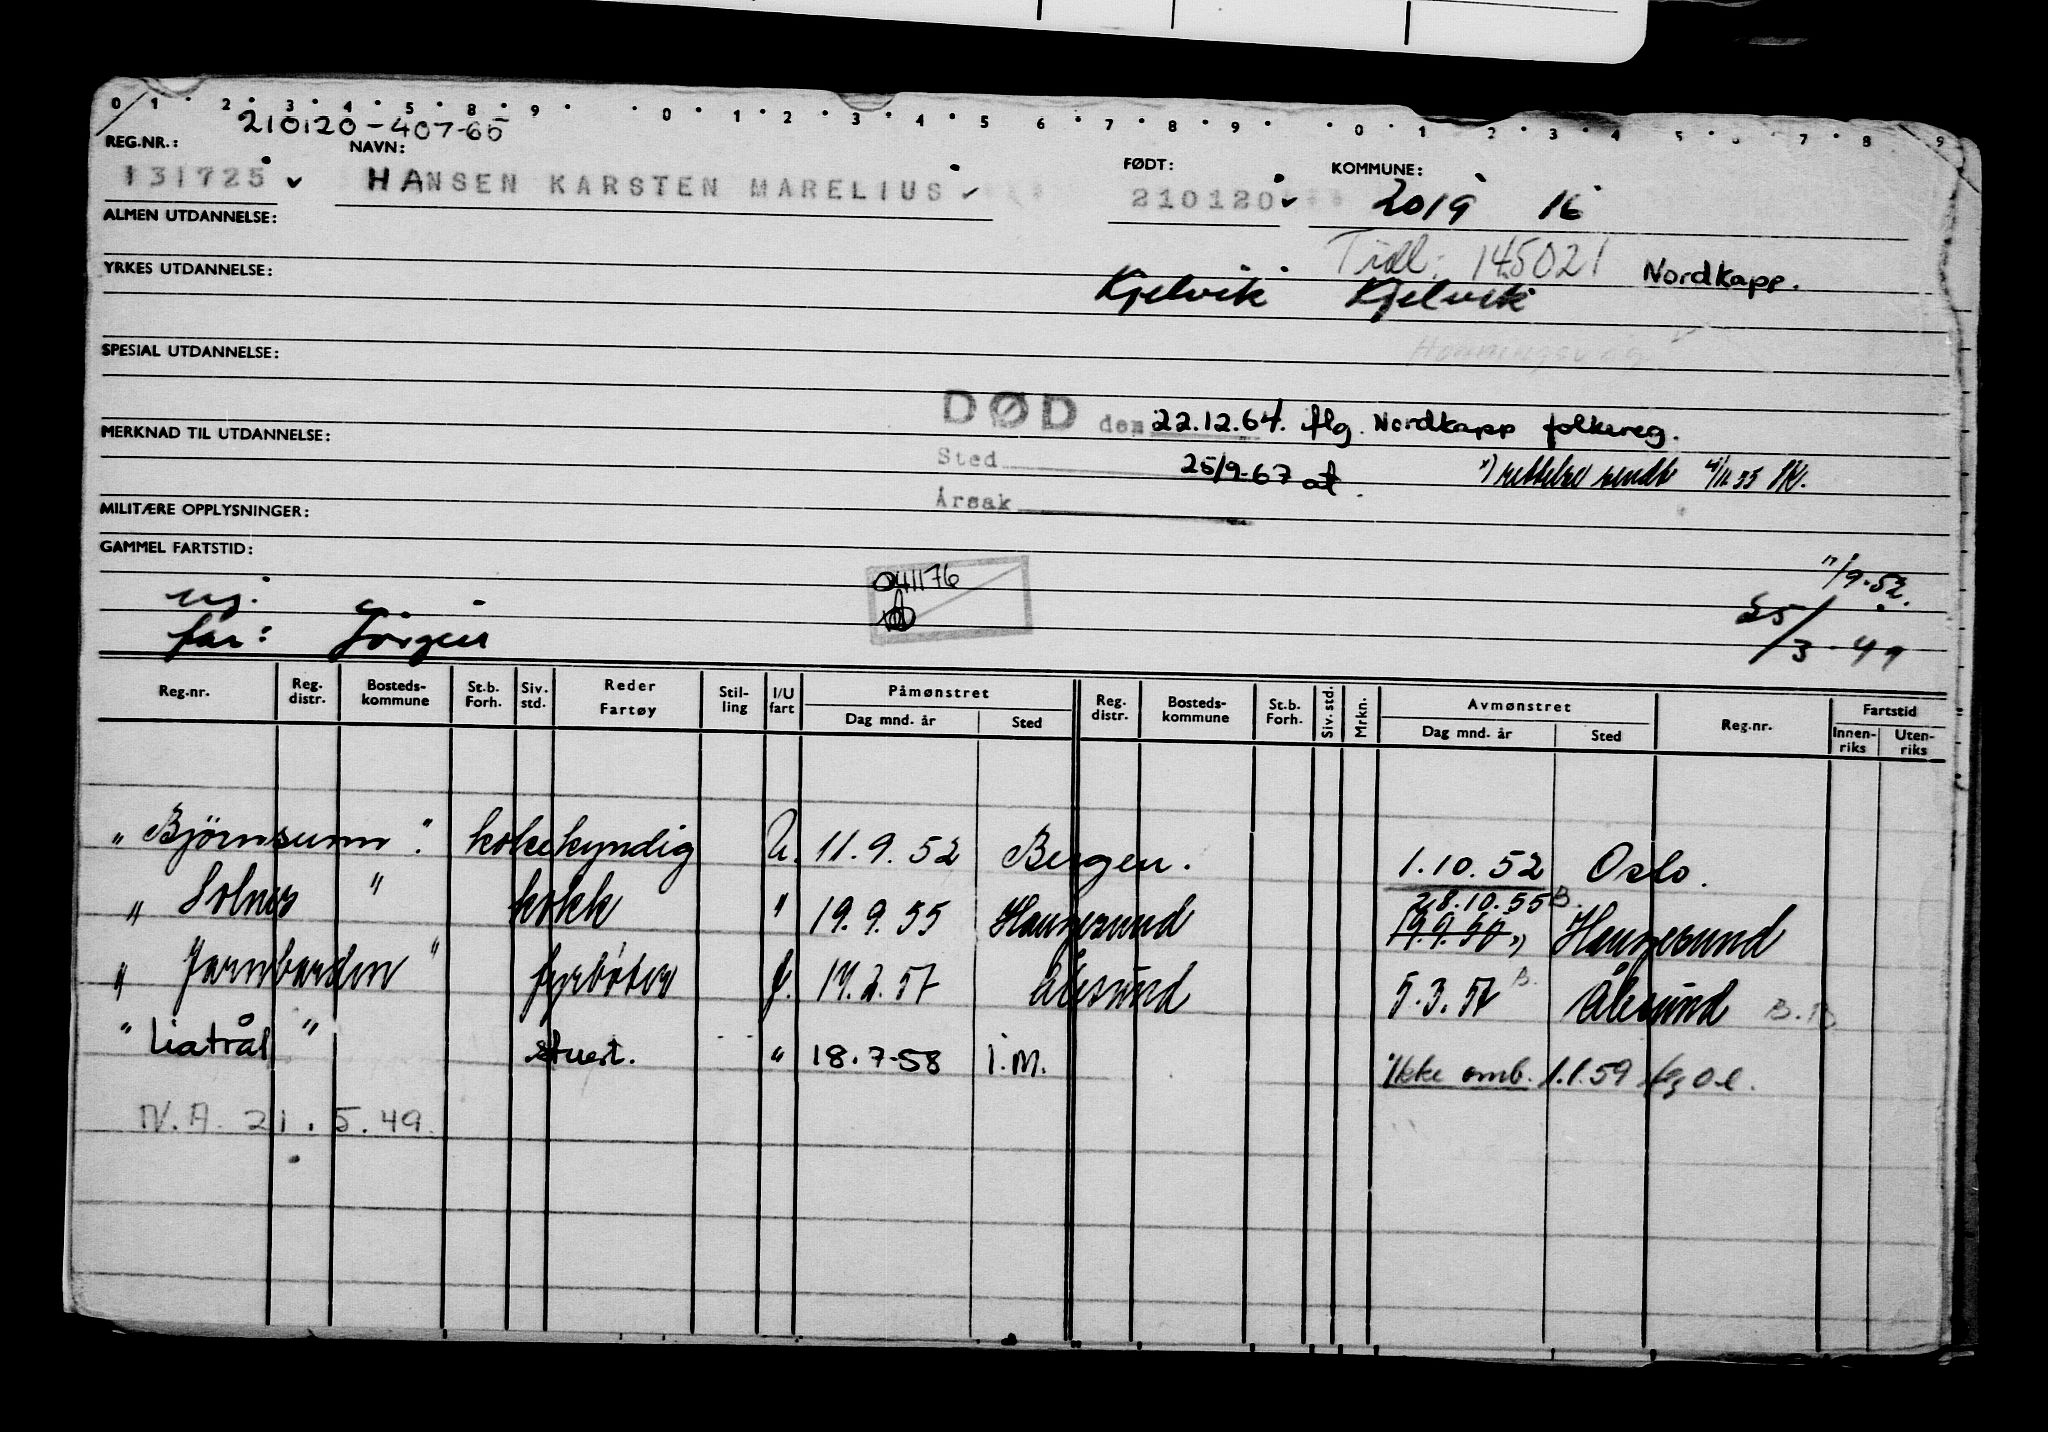 0 1 2 3 4 5 8 9 0 1 2 3 4 5 6 7 8 9 0 1 2 3 4 5 7 8 9
210120-407-65
REG.NR.: NAVN: FØDT: KOMMUNE:
131725 HANSEN KARSTEN MARELIUS 210120 2019 16
ALMEN UTDANNELSE:
Tidl: 145021 Nordkapp.
YRKES UTDANNELSE: Kjelvik Kjelvik
Honningsvåg
SPESIAL UTDANNELSE:
DØD den 22.12.64. flg. Nordkapp folkereg.
MERKNAD TIL UTDANNELSE:
Sted 25/9-67 at. rettelse sendt
Årsak
MILITÆRE OPPLYSNINGER:
GAMMEL FARTSTID:
041176
11/9-52.
ug.
25/3-49
far: Jörgen
Reg.nr. Reg. distr. Bosteds-kommune St.b. Forh. Siv. std. Reder Fartøy Stil-ling I/U fart Påmønstret Reg. distr. Bosteds-kommune St.b. Forh. Siv. std. Mrkn. Avmønstret Reg.nr. Fartstid
Dag mnd. år Sted Dag mnd. år Sted Innen-riks Uten-riks
"Björnsunn". kokekyndig U. 11.9.52 Bergen. 1.10.52 Oslo.
28.10.55 B.
"Solnes" kokk " 19.9.55 Haugesund 19.9.50 Haugesund
"Jarnbarden" fyrbøter J. 17.2.57 Ålesund 5.3.57 B. Ålesund
"Liatrål" stuert. " 18.7.58 I.M. Ikke omb. 1.1.59
N.A. 21.5.49.